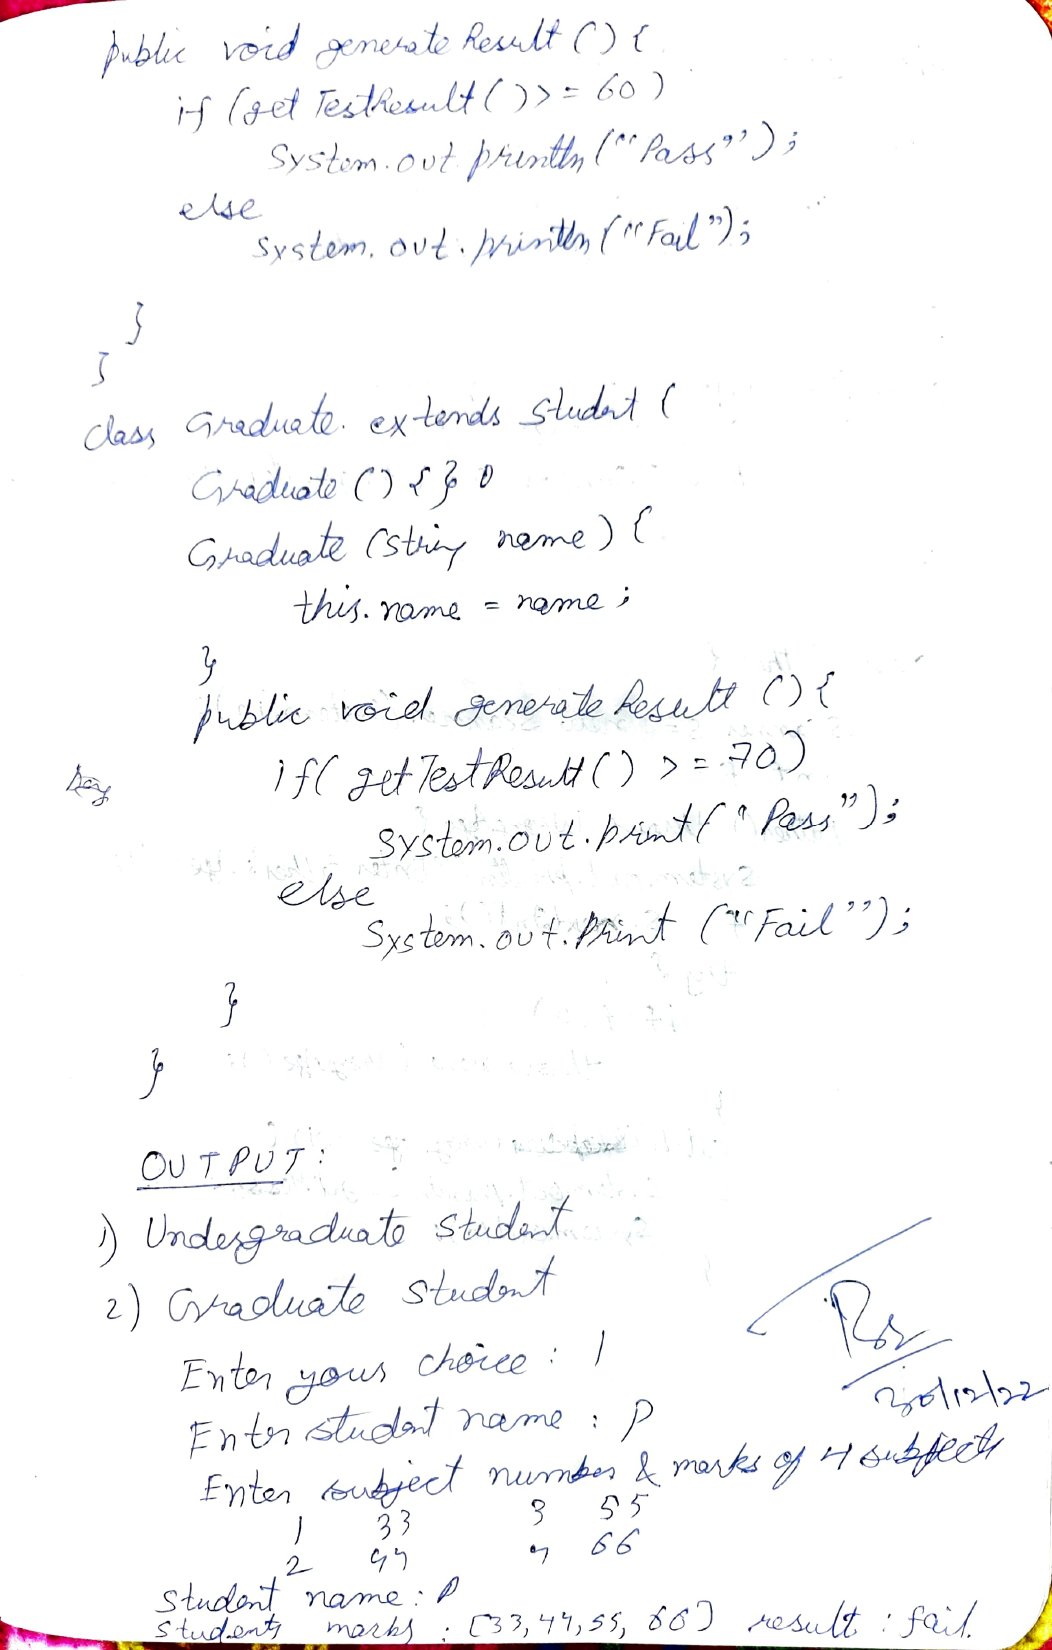 public void generateResult () {
if (getTestResult () >= 60)
System.out.println ("Pass");
else
System.out.println ("Fail");
}
}
class Graduate. extends Student {
Graduate () { }
Graduate (String name) {
this.name = name ;
}
public void generateResult () {
if( getTestResult () >= 70)
System.out.print ("Pass");
else
System.out.Print ("Fail");
}
}
OUTPUT :
1) Undergraduate Student
2) Graduate Student
Enter your choice : 1
Enter student name : P
Enter subject number & marks of 4 subjects
1 33 3 55
2 44 4 66
Student name : P
Students marks : [33, 44, 55, 66] result : fail.
30/12/22